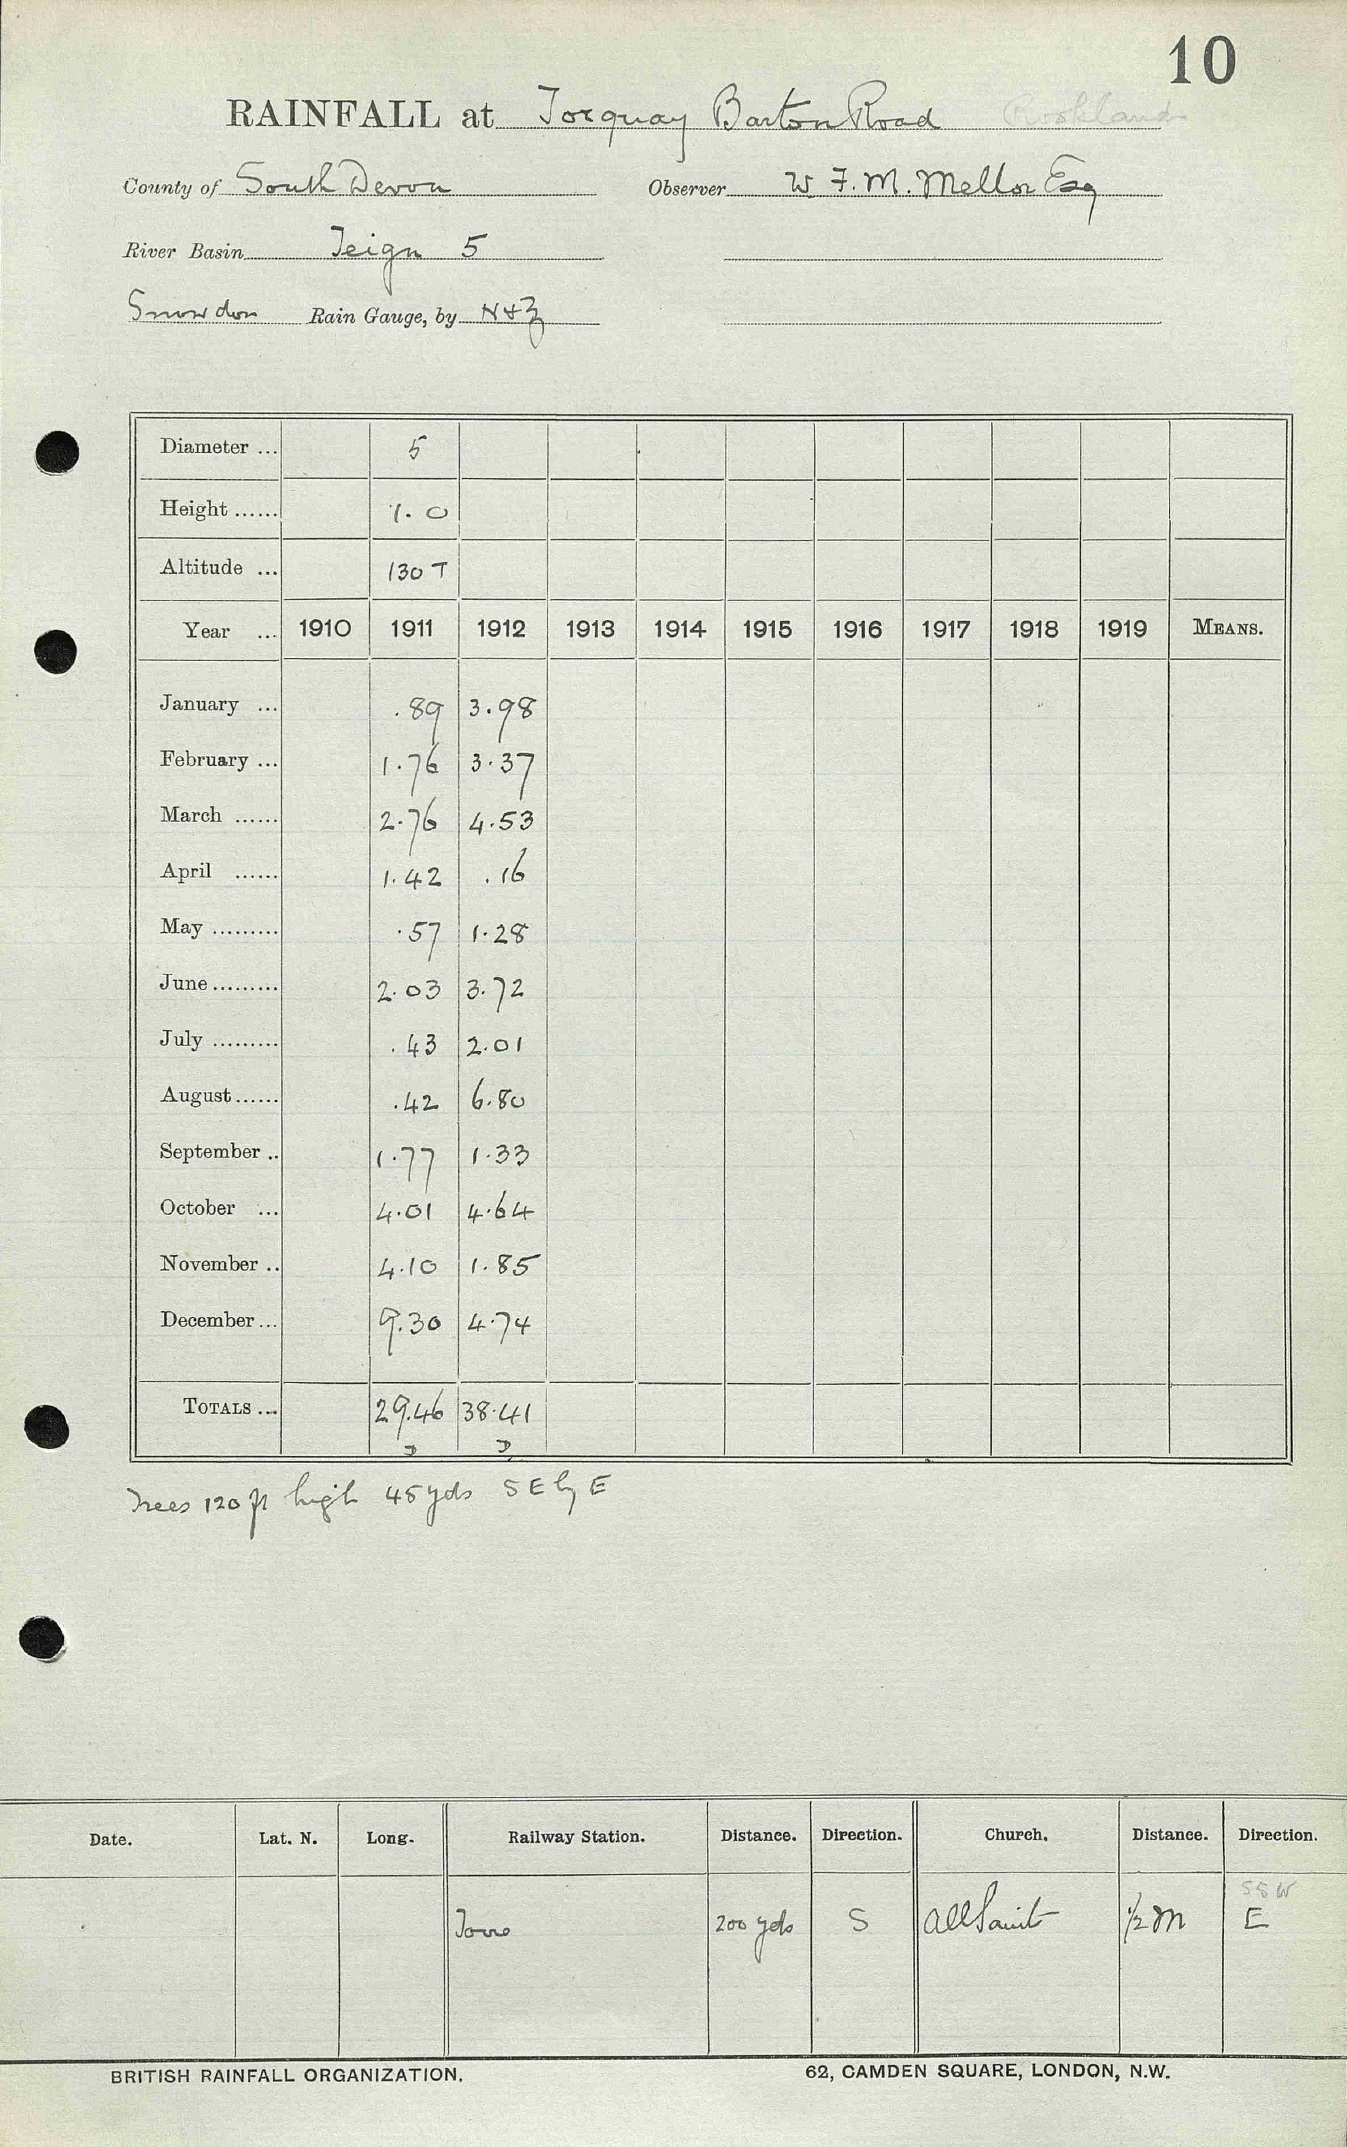 10
RAINFALL at Torquay Barton Road Rooklands
County of South Devon Observer W. F. M. Mellor Esq
River Basin Teign 5
Snowdon Rain Gauge, by N & Z
Diameter ... 5
Height ...... 1.0
Altitude ... 130 T
Year ... 1910 1911 1912 1913 1914 1915 1916 1917 1918 1919 MEANS.
January ... .89 3.98
February ... 1.76 3.37
March ...... 2.76 4.53
April ...... 1.42 .16
May ......... .57 1.28
June ......... 2.03 3.72
July ......... .43 2.01
August ...... .42 6.80
September .. 1.77 1.33
October ... 4.01 4.64
November .. 4.10 1.85
December ... 9.30 4.74
TOTALS ... 29.46 38.41
D D
Trees 120 ft high 45 yds S E by E
Date. Lat. N. Long. Railway Station. Distance. Direction. Church. Distance. Direction.
SSW
Torre 200 yds S All Saint 1/2 M E
BRITISH RAINFALL ORGANIZATION. 62, CAMDEN SQUARE, LONDON, N.W.